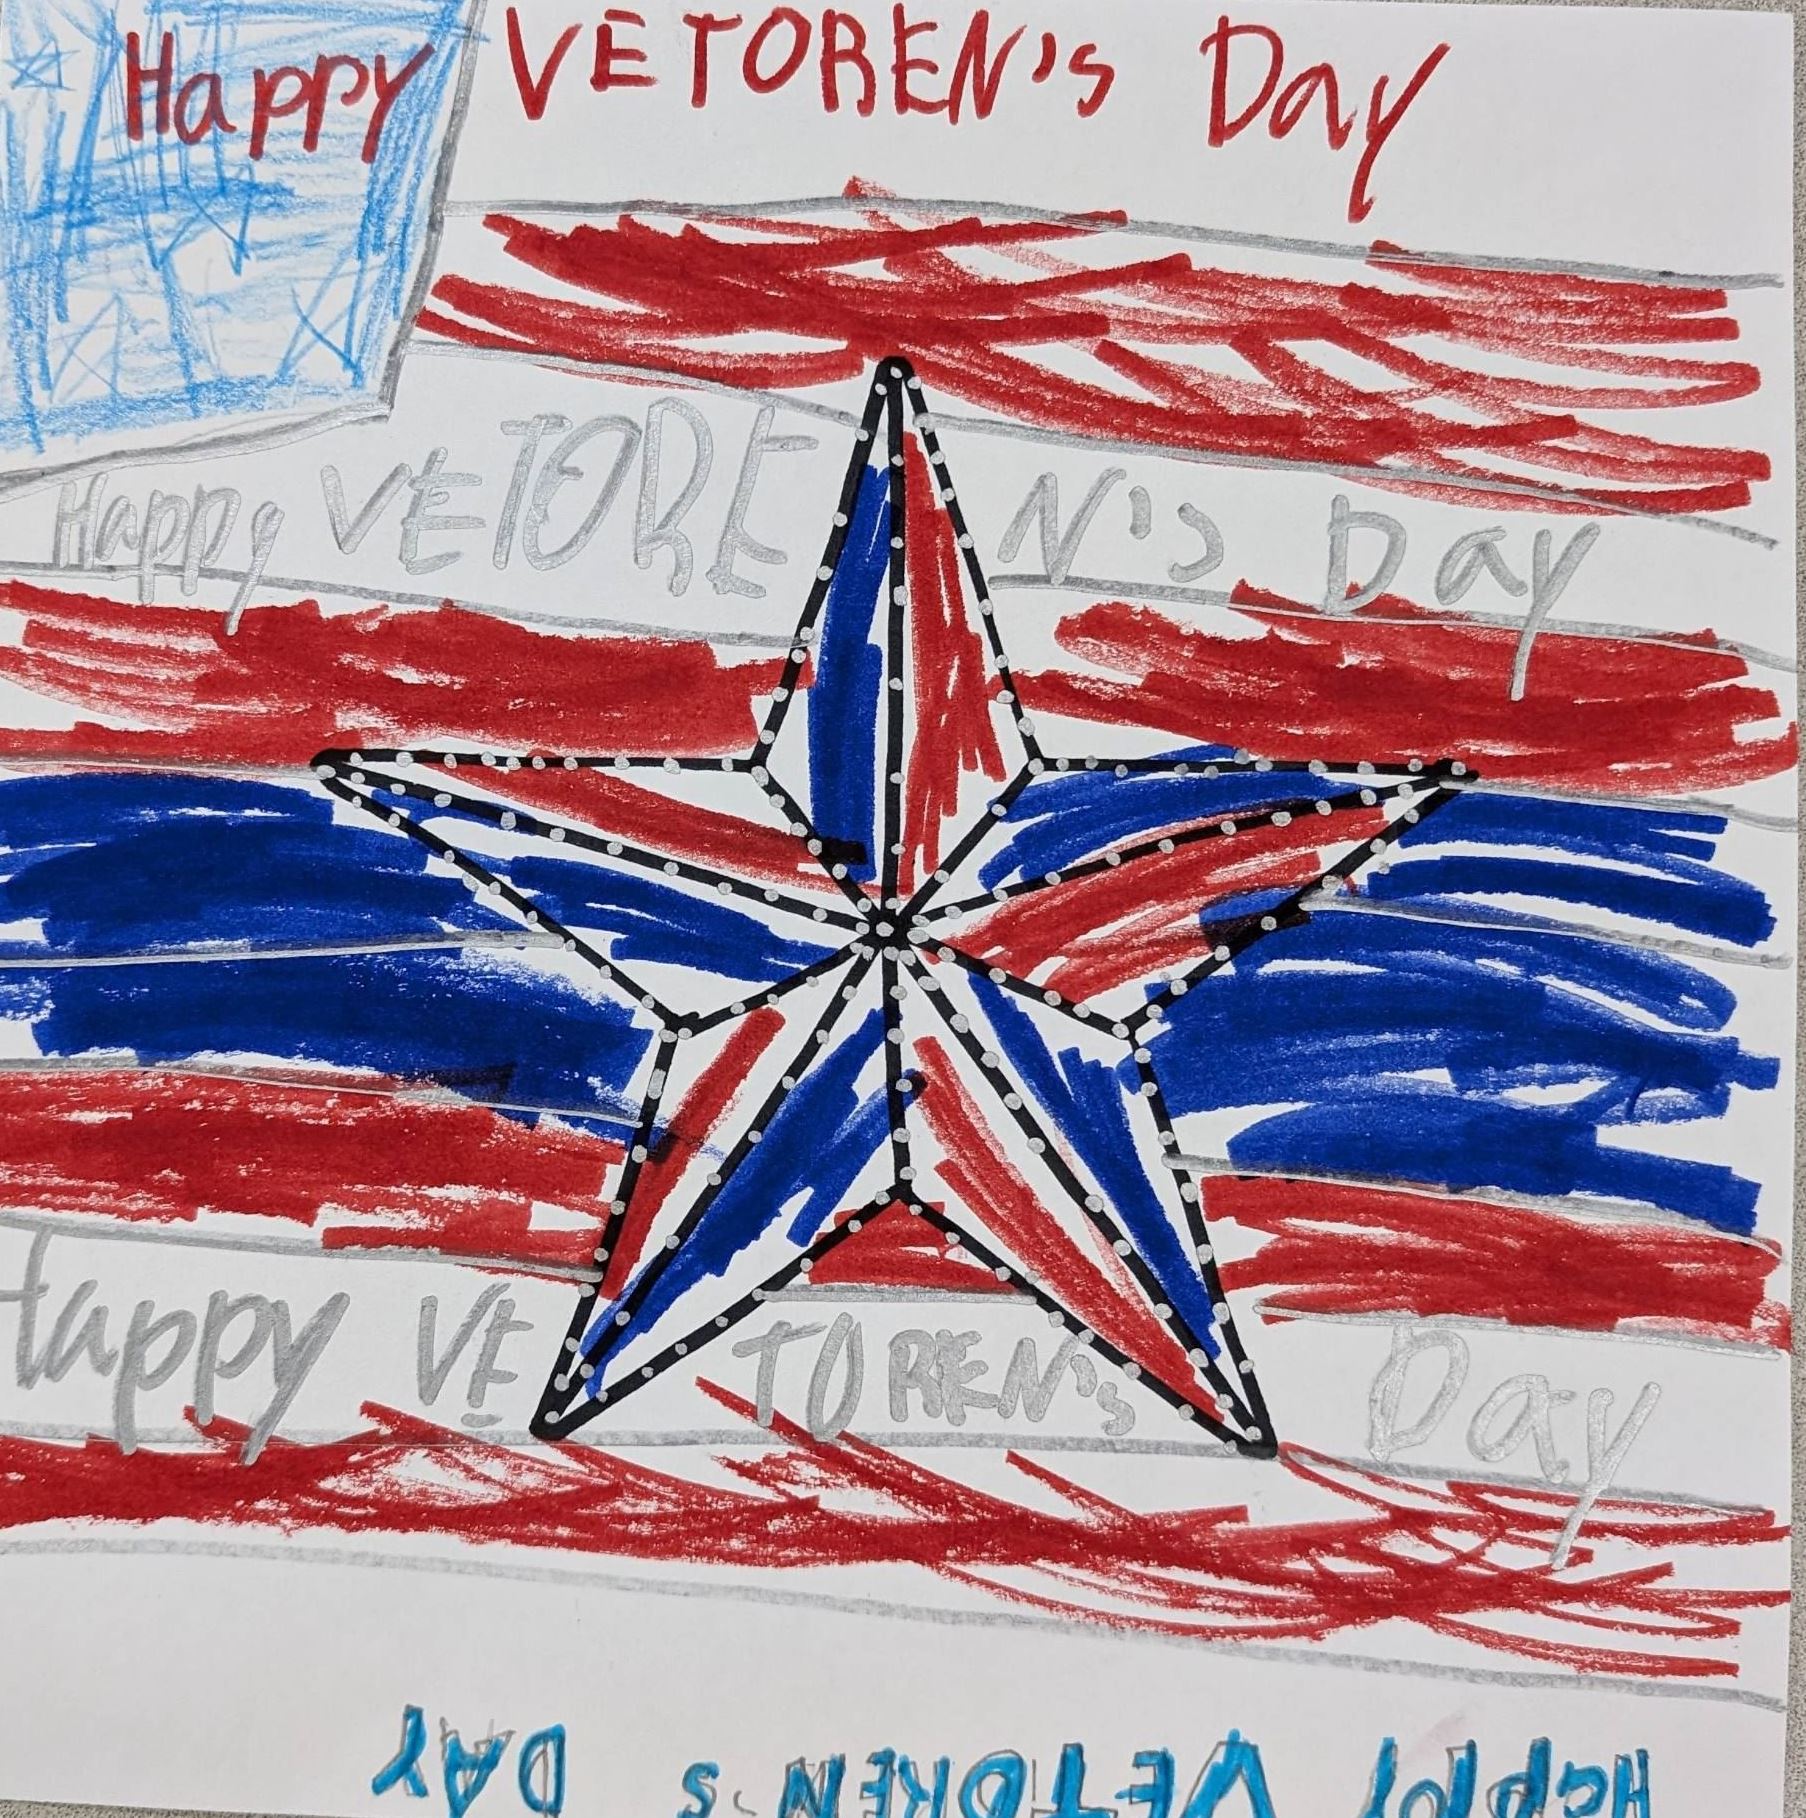 Happy VETOREN's Day
Happy VETOREN's Day
Happy VETOREN's Day
Happy VETOREN's DAY